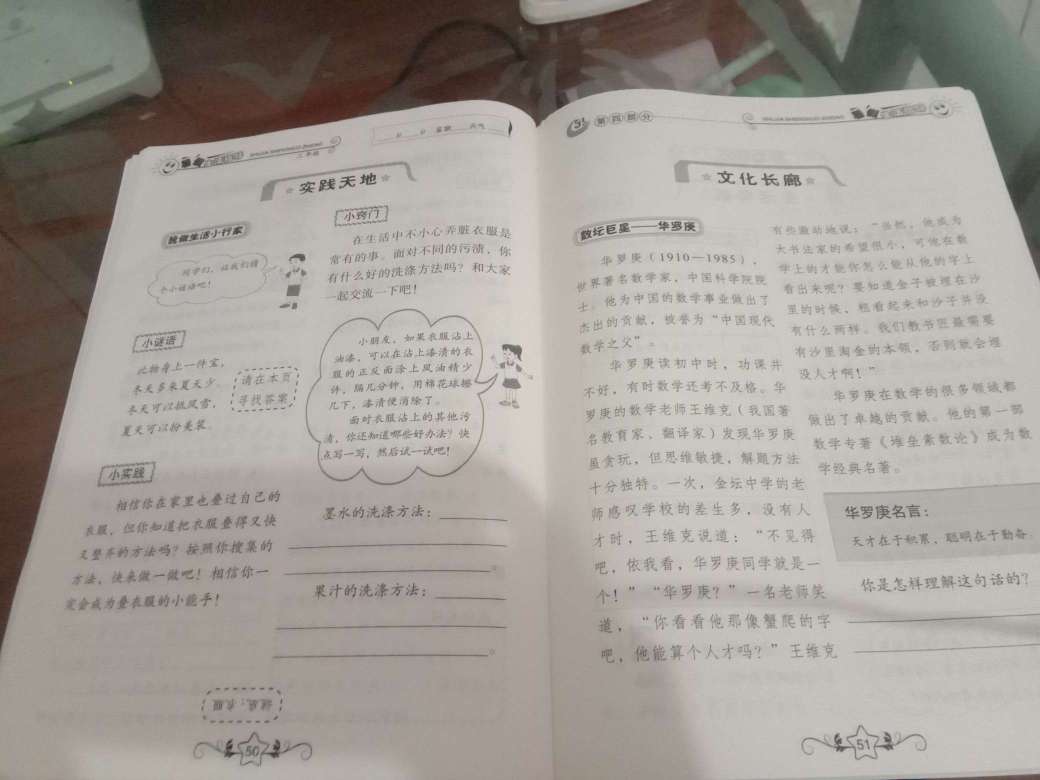 三年级
月 日 星期 天气
实践天地
我做生活小行家
同学们，让我们猜
个小谜语吧！
小谜语
此物身上一件宝，
冬天多来夏天少。
冬天可以抵风雪，
夏天可以扮美装。
请在本页
寻找答案
小实践
相信你在家里也叠过自己的
衣服，但你知道把衣服叠得又快
又整齐的方法吗？按照你搜集的
方法，快来做一做吧！相信你一
定会成为叠衣服的小能手！
小窍门
在生活中不小心弄脏衣服是
常有的事。面对不同的污渍，你
有什么好的洗涤方法吗？和大家
一起交流一下吧！
小朋友，如果衣服沾上
油漆，可以在沾上漆渍的衣
服的正反面涂上风油精少
许，隔几分钟，用棉花球擦
几下，漆渍便消除了。
面对衣服沾上的其他污
渍，你还知道哪些好办法？快
点写一写，然后试一试吧！
墨水的洗涤方法：
。
果汁的洗涤方法：
。
谜底：衣服
50
第四部分
文化长廊
数坛巨星——华罗庚
华罗庚（1910—1985），
世界著名数学家，中国科学院院
士。他为中国的数学事业做出了
杰出的贡献，被誉为“中国现代
数学之父”。
华罗庚读初中时，功课并
不好，有时数学还考不及格。华
罗庚的数学老师王维克（我国著
名教育家、翻译家）发现华罗庚
虽贪玩，但思维敏捷，解题方法
十分独特。一次，金坛中学的老
师感叹学校的差生多，没有人
才时，王维克说道：“不见得
吧，依我看，华罗庚同学就是一
个！”“华罗庚？”一名老师笑
道，“你看看他那像蟹爬的字
吧，他能算个人才吗？”王维克
有些激动地说：“当然，他成为
大书法家的希望很小，可他在数
学上的才能你怎么能从他的字上
看出来呢？要知道金子被埋在沙
里的时候，粗看起来和沙子并没
有什么两样。我们教书匠最需要
有沙里淘金的本领，否则就会埋
没人才啊！”
华罗庚在数学的很多领域都
做出了卓越的贡献。他的第一部
数学专著《堆垒素数论》成为数
学经典名著。
华罗庚名言：
天才在于积累，聪明在于勤奋。
你是怎样理解这句话的？
51